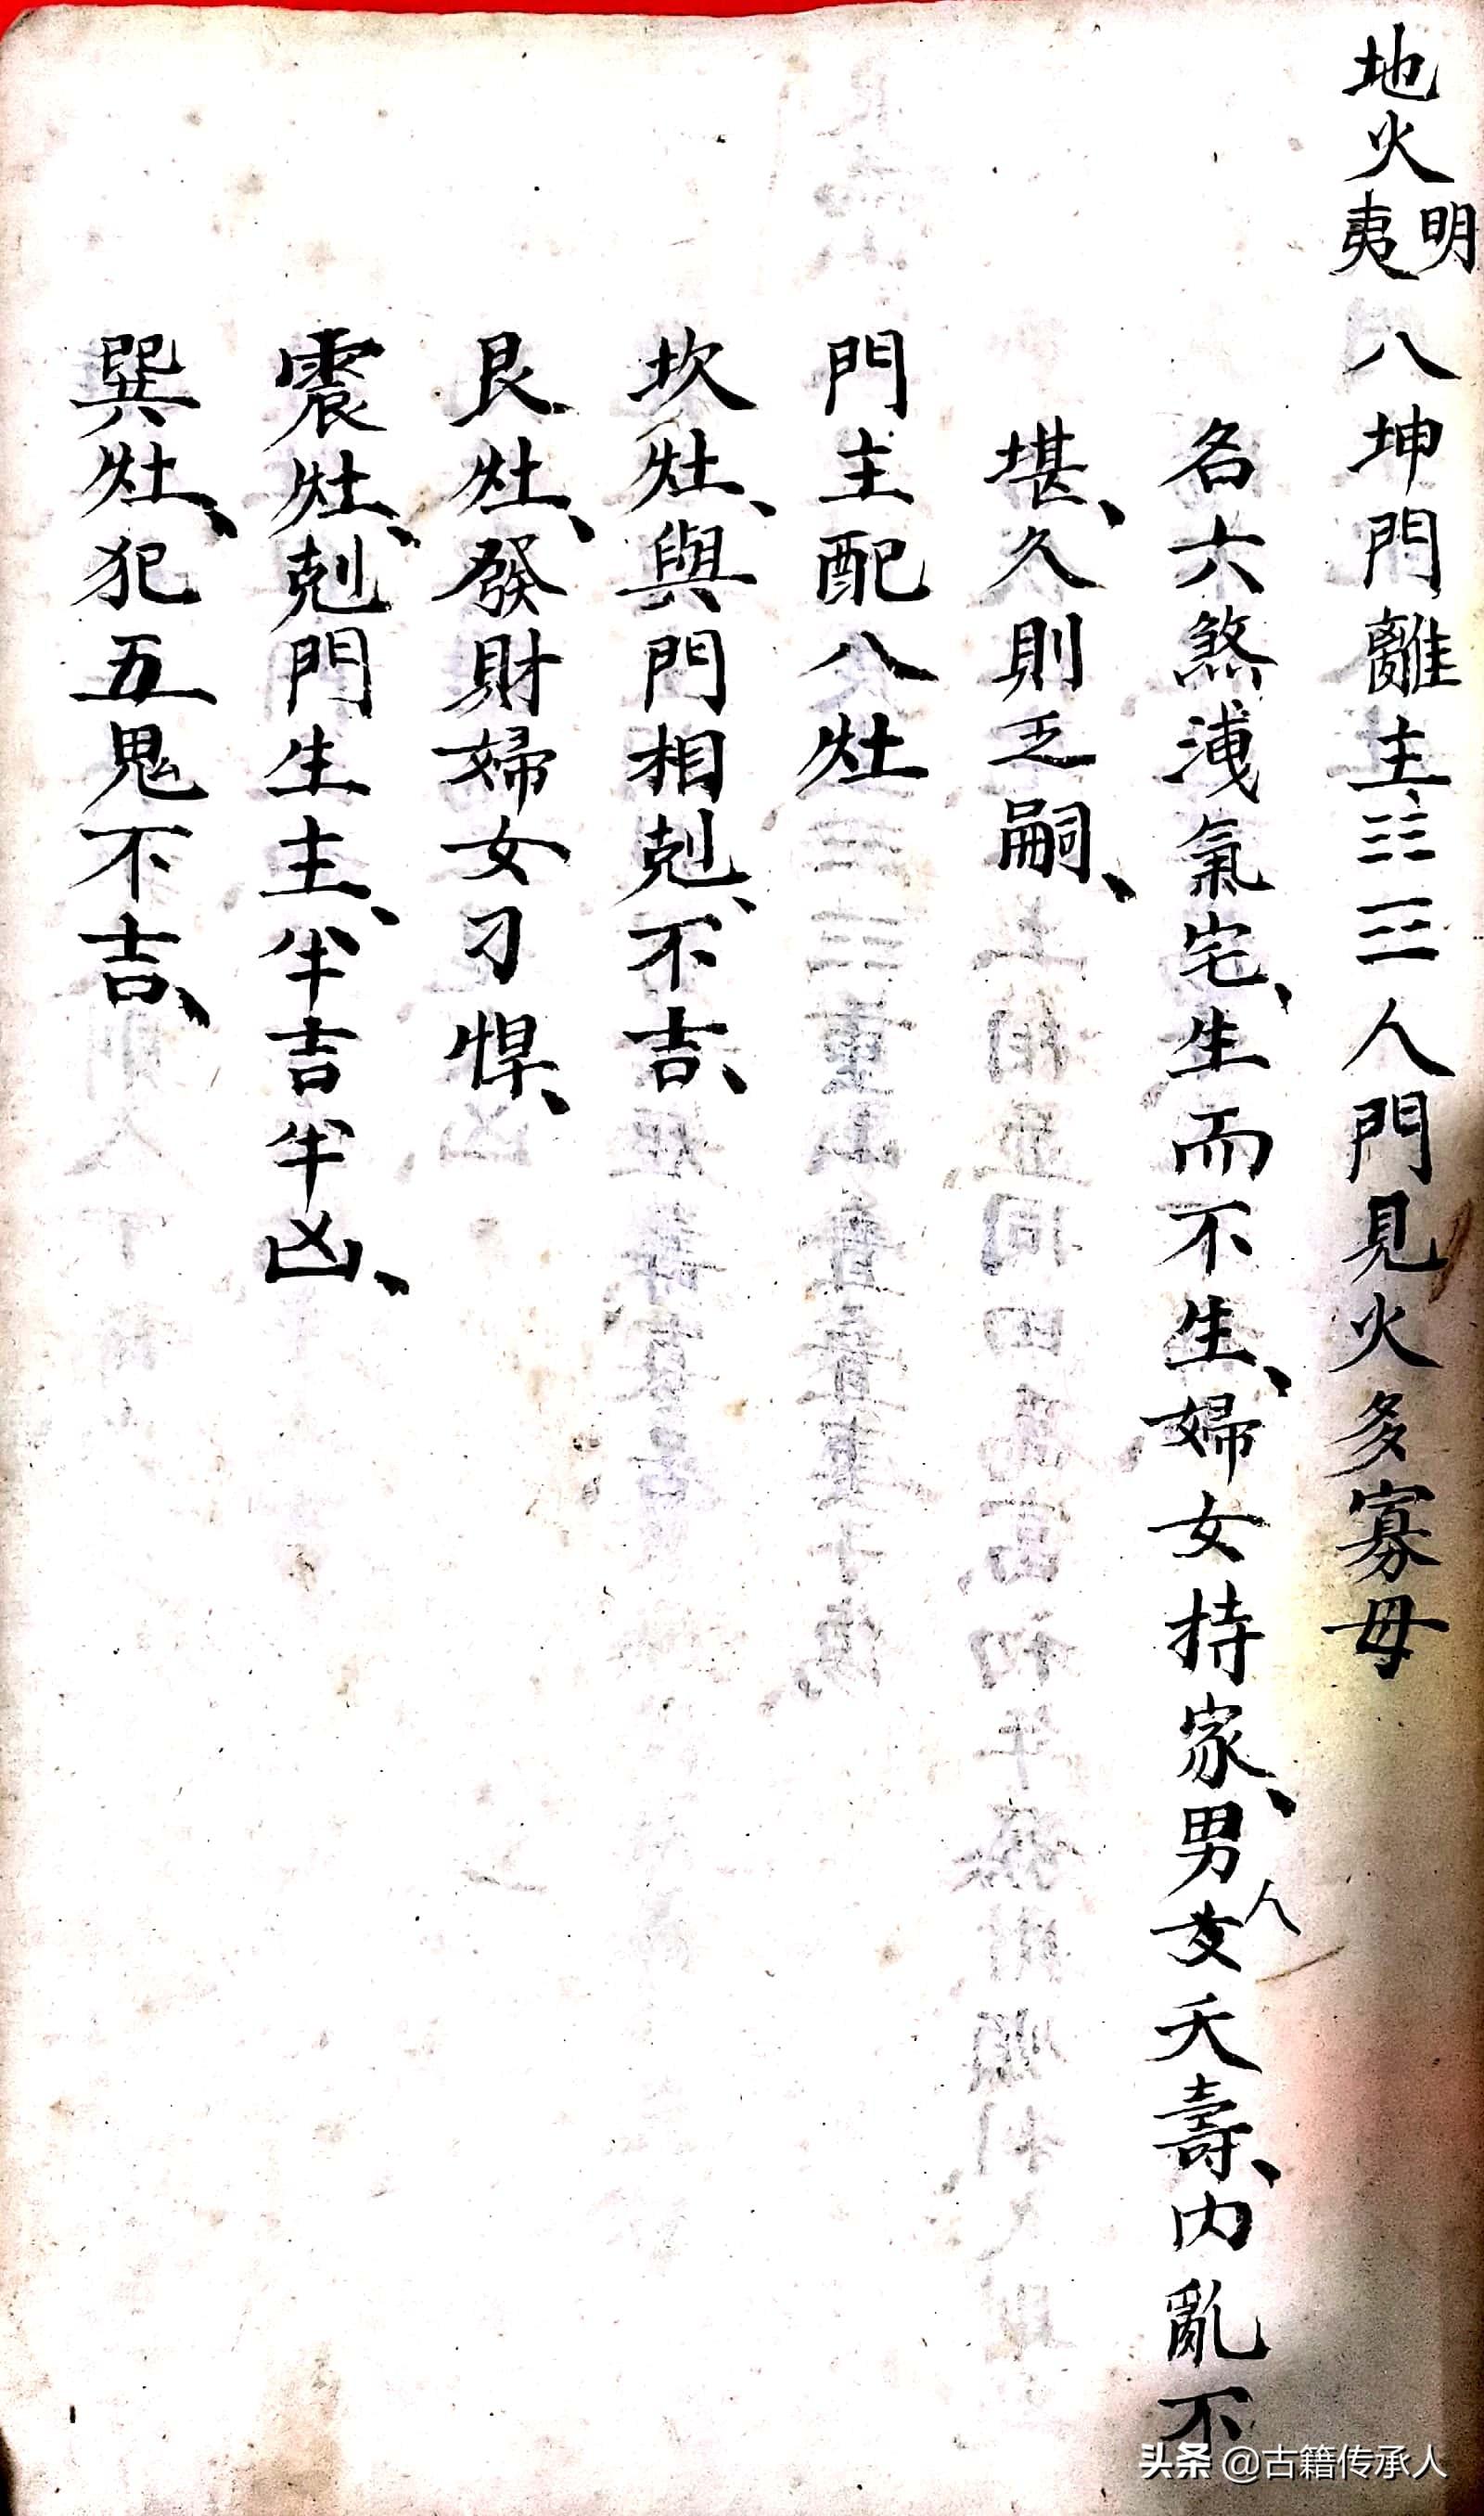 地火明夷 八坤門離主☷☲人門見火多寡母
名六煞洩氣宅、生而不生、婦女持家、男人夭壽、內亂不
堪、久則乏嗣、
門主配八灶
坎灶、與門相剋、不吉、
艮灶、發財婦女刁悍、
震灶、剋門生主、半吉半凶、
巽灶、犯五鬼不吉、
头条 @古籍传承人